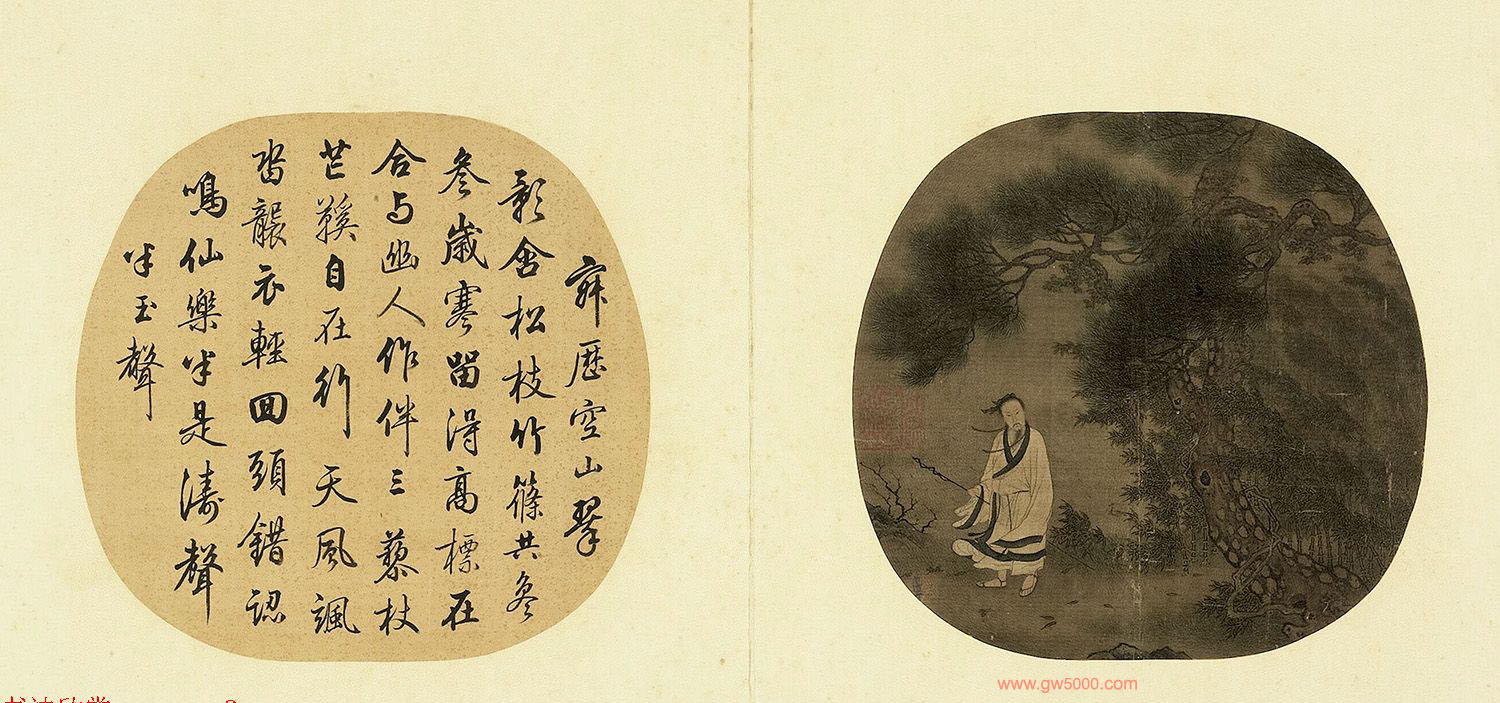 寂歴空山翠
影含松枝竹篠共參
參嵗寒留得高標在
合与幽人作伴三藜杖
芒鞵自在行天風颯
沓襲衣輕回頭錯認
鳴仙樂半是濤聲
半玉聲
www.gw5000.com